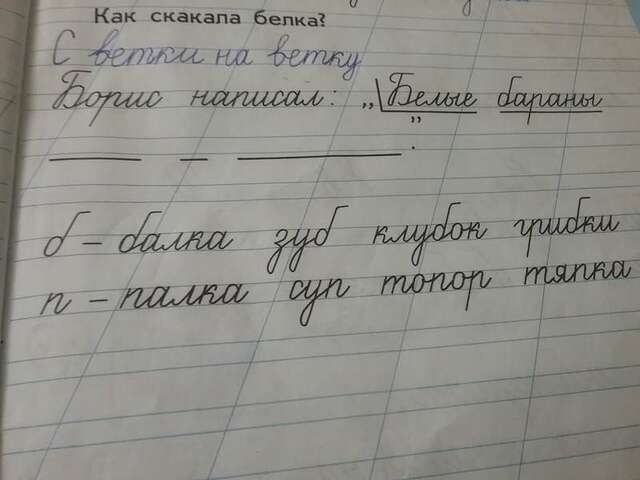 Как скакала белка?
С ветки на ветку
Борис написал: „Белые бараны
___ - ______."
б - балка зуб клубок грибки
п - палка суп топор тяпка